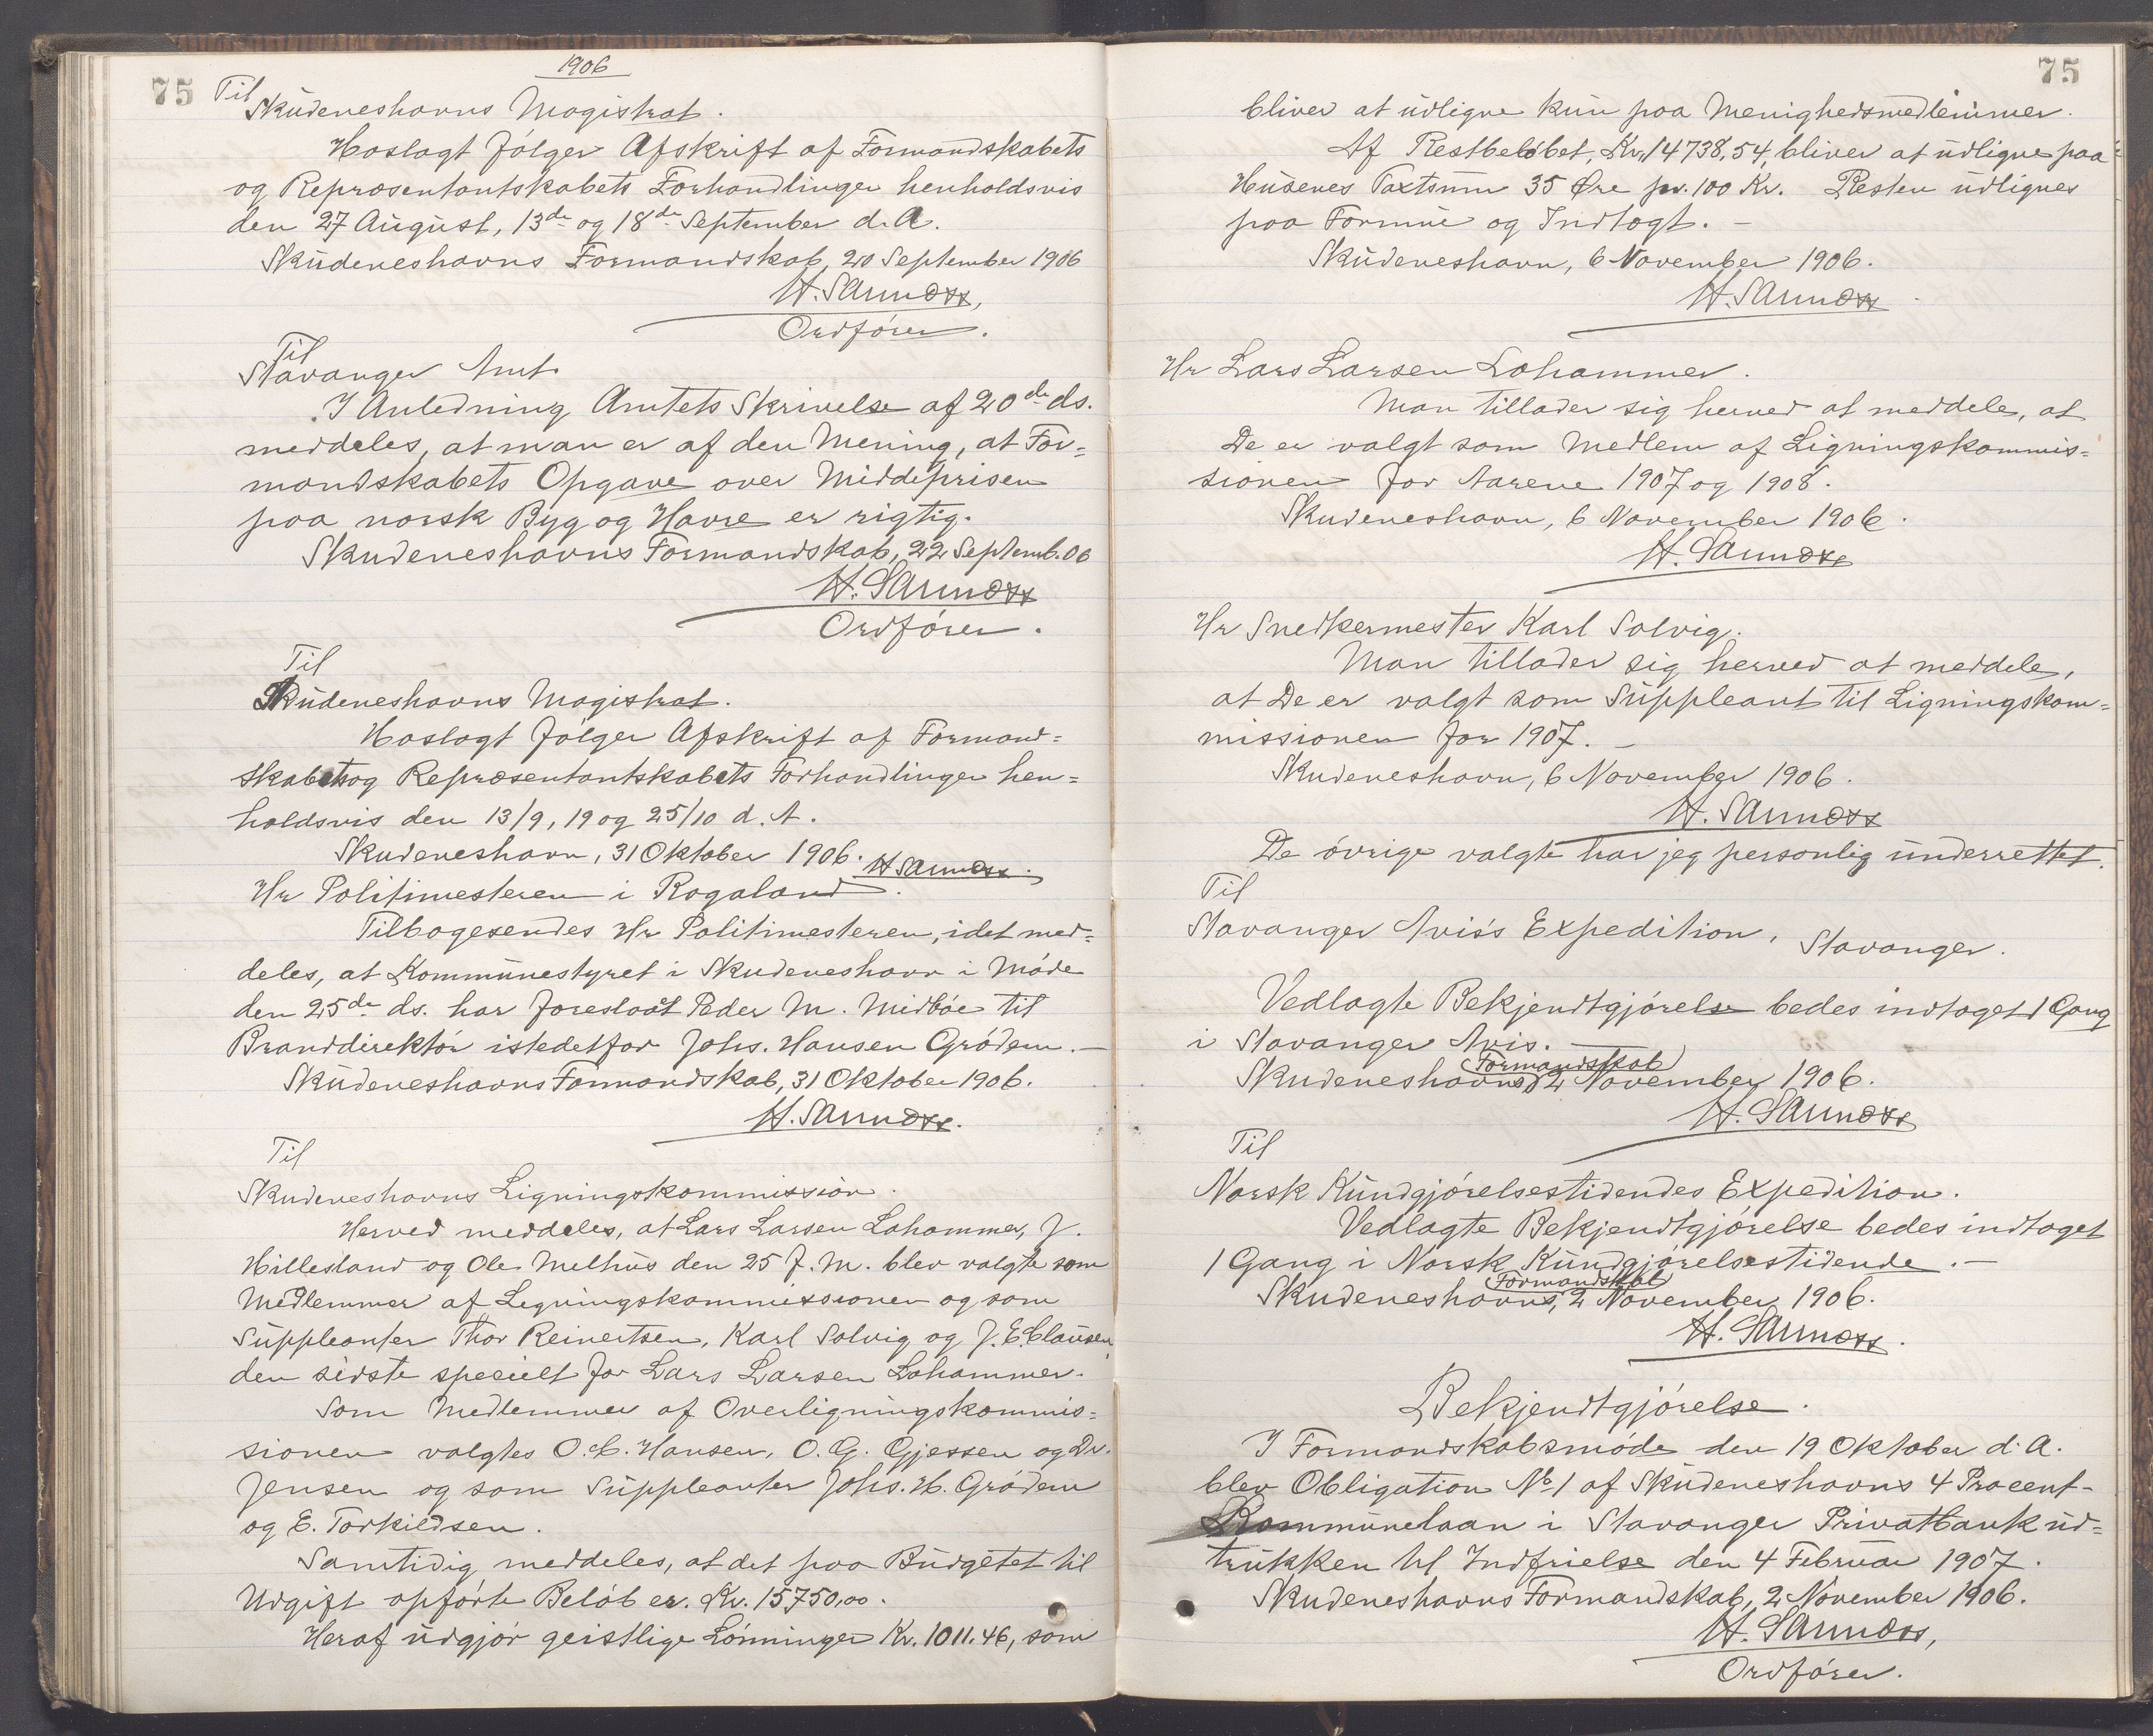 1906
75
Til
Skudeneshavns Magistrat.
Hoslagt følger Afskrift af Formandskabets
og Repræsentantskabets Forhandlinger henholdsvis
den 27 August, 13de og 18de September d. A.
Skudeneshavns Formandskab, 20 September 1906
Ordfører.
Til
Stavanger Amt.
I Anledning Amtets Skrivelse af 20de ds.
meddeles, at man er af den Mening, at For=
mandskabets Opgave over Middeprisen
paa norsk Byg og Havre er rigtig.
Skudeneshavns Formandskab, 22 Septemb. 06
Ordfører.
Til
Skudeneshavns Magistrat.
Hoslagt følger Afskrift af Formand=
skabets og Repræsentantskabets Forhandlinger hen=
holdsvis den 13/9, 19 og 25/10 d. A.
Skudeneshavn, 31 Oktober 1906.
Hr Politimesteren i Rogaland.
Tilbagesendes Hr Politimesteren, idet med=
deles, at Kommunestyret i Skudeneshavn i Møde
den 25de ds. har foreslaat Peder M. Midbøe til
Branddirektør istedetfor Johs. Hansen Grødem.—
Skudeneshavns Formandskab, 31 Oktober 1906.
Til
Skudeneshavns Ligningskommission.
Herved meddeles, at Lars Larsen Lahammer, J.
Hillesland og Ole Melhus den 25 f. M. blev valgte som
Medlemmer af Ligningskommissionen og som
Suppleanter Thor Reinertsen, Karl Solvig og J. E. Clausen,
den sidste specielt for Lars Larsen Lahammer.
Som Medlemmer af Overligningskommis=
sionen valgtes O. C. Hansen, O. G. Gjessen og Dr.
Jensen og som Suppleanter Johs. H. Grødem
og E. Torkildsen.
Samtidig meddeles, at det paa Budgetet til
Udgift opførte Beløb er. Kr. 15750,00.
Heraf udgjør geistlige Lønninger Kr. 1011.46, som
75
bliver at udligne kun paa Menighedsmedlemmer.
Af Restbeløbet, Kr. 14738,54, bliver at udligne paa
Husenes Taxtsum 35 Øre pr. 100 Kr. Resten udlignes
paa Formue og Indtægt. —
Skudeneshavn, 6 November 1906.
Hr Lars Larsen Lahammer.
Man tillader sig herved at meddele, at
De er valgt som Medlem af Ligningskommis=
sionen for Aarene 1907 og 1908.
Skudeneshavn, 6 November 1906.
Hr Snedkermester Karl Solvig.
Man tillader sig herved at meddele,
at De er valgt som Suppleant til Ligningskom=
missionen for 1907. —
Skudeneshavn, 6 November 1906.
De øvrige valgte har jeg personlig underrettet.
Til
Stavanger Avis's Expedition, Stavanger.
Vedlagte Bekjendtgjørelse bedes indtaget 1 Gang
i Stavanger Avis.
Formandskab
Skudeneshavns, 2 November 1906.
Til
Norsk Kundgjørelsestidendes Expedition.
Vedlagte Bekjendtgjørelse bedes indtaget
1 Gang i Norsk Kundgjørelsestidende. —
Formandskab
Skudeneshavns, 2 November 1906.
Bekjendtgjørelse.
I Formandskabsmøde den 19 Oktober d. A.
blev Obligation No 1 af Skudeneshavns 4 Procent-
Kommunelaan i Stavanger Privatbank ud=
trukken til Indfrielse den 4 Februar 1907.
Skudeneshavns Formandskab, 2 November 1906.
Ordfører.